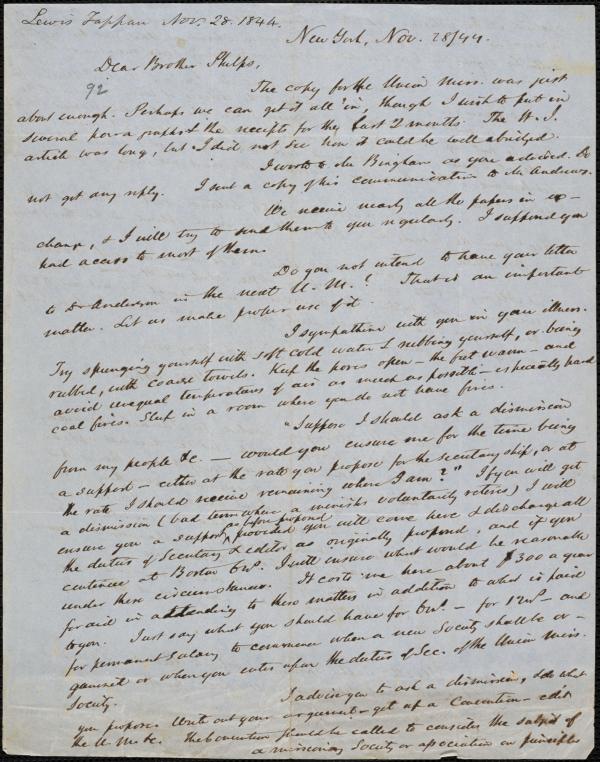 Lewis Tappan Nov. 28. 1844.
New York, Nov. 28/44.
Dear Brother Phelps,
92
The copy for the Union Miss. was just
about enough. Perhaps we can get it all in, though I wish to put in
several paragraphs & the receipts for the last 2 months. The W. I.
article was long, but I did not see how it could be well abridged.
I wrote to Mr Bingham as you advised. Do
not get any reply. I sent a copy of his communication to Mr Andrews.
We receive nearly all the papers in ex-
change, & I will try to send them to you regularly. I supposed you
had access to most of them.
Do you not intend to have your letter
to Dr Anderson in the next U. M.? That is an important
matter. Let us make proper use of it.
I sympathise with you in your illness.
Try spunging yourself with soft cold water & rubbing yourself, or being
rubbed, with coarse towels. Keep the pores open - the feet warm - and
avoid unequal temperatures of air as much as possible - especially hard
coal fires. Sleep in a room where you do not have fires.
"Suppose I should ask a dismission
from my people &c. - would you ensure me for the time being
a support - either at the rate you propose for the secretaryship, or at
the rate I should receive remaining where I am?" If you will get
a dismission (bad term where a minister voluntarily retires) I will
ensure you a support as you propose provided you will come here & discharge all
the duties of Secretary & editor as originally proposed, and if you
continue at Boston I will insure what would be reasonable
under these circumstances. It costs me here about $300 a year
for aid in attending to these matters in addition to what is paid
to you. Just say what you should have for - for - and
for permanent salary to commence when a new Society shall be or-
ganized or when you enter upon the duties of Sec. of the Union Miss.
Society.
I advise you to ask a dismission, & do what
you propose. Write out your argument - get up a Convention - edit
the U. M. &c. The Convention should be called to consider the subject of
a missionary Society or association on principles